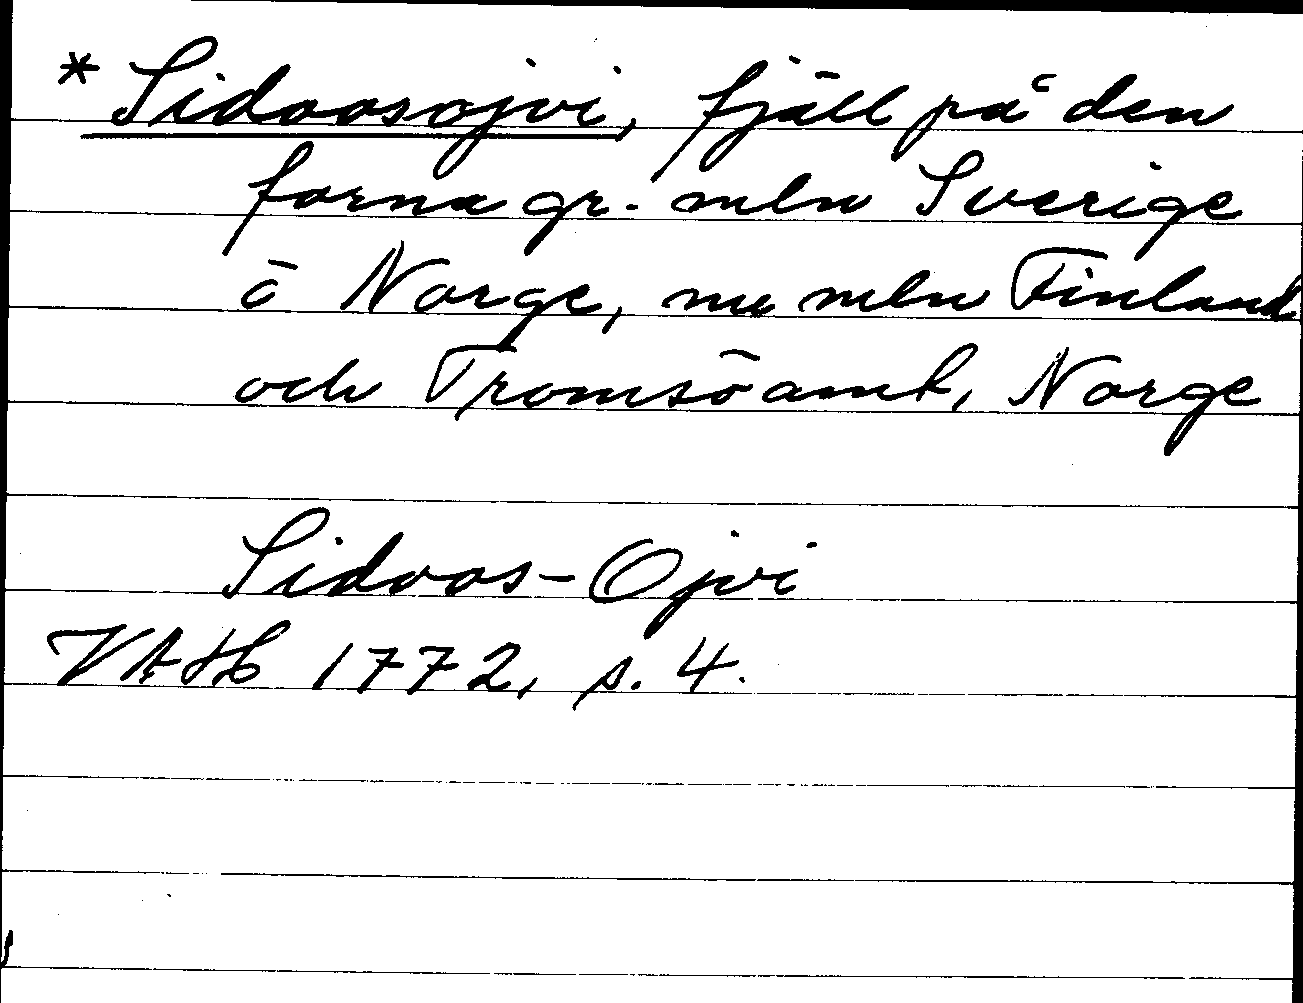 * Sidoosojvi, fjäll på den
forna gr. mln Sverige
o Norge, nu mln Finland
och Tromsöamt, Norge
Sidoos-Ojvi
VAH 1772, s. 4.